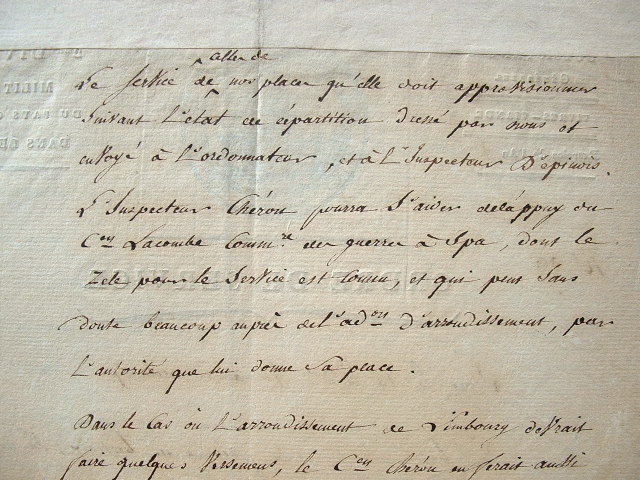 celle de
Le service de nos places qu'elle doit approvisionner
suivant l'état de répartition dressé par nous et
envoyé à l'ordonnateur, et à l'Inspecteur D'épinois.
L'Inspecteur Chéron pourra s'aider de l'appuy du
Cen Lacombe Commre des guerres à Spa, dont le
zele pour le service est connu, et qui peut sans
doute beaucoup auprès de l'adon d'arrondissement, par
l'autorité que lui donne sa place.
Dans le cas où l'arrondissement de Limbourg devrait
faire quelques versemens, le Cen Chéron en serait aussi